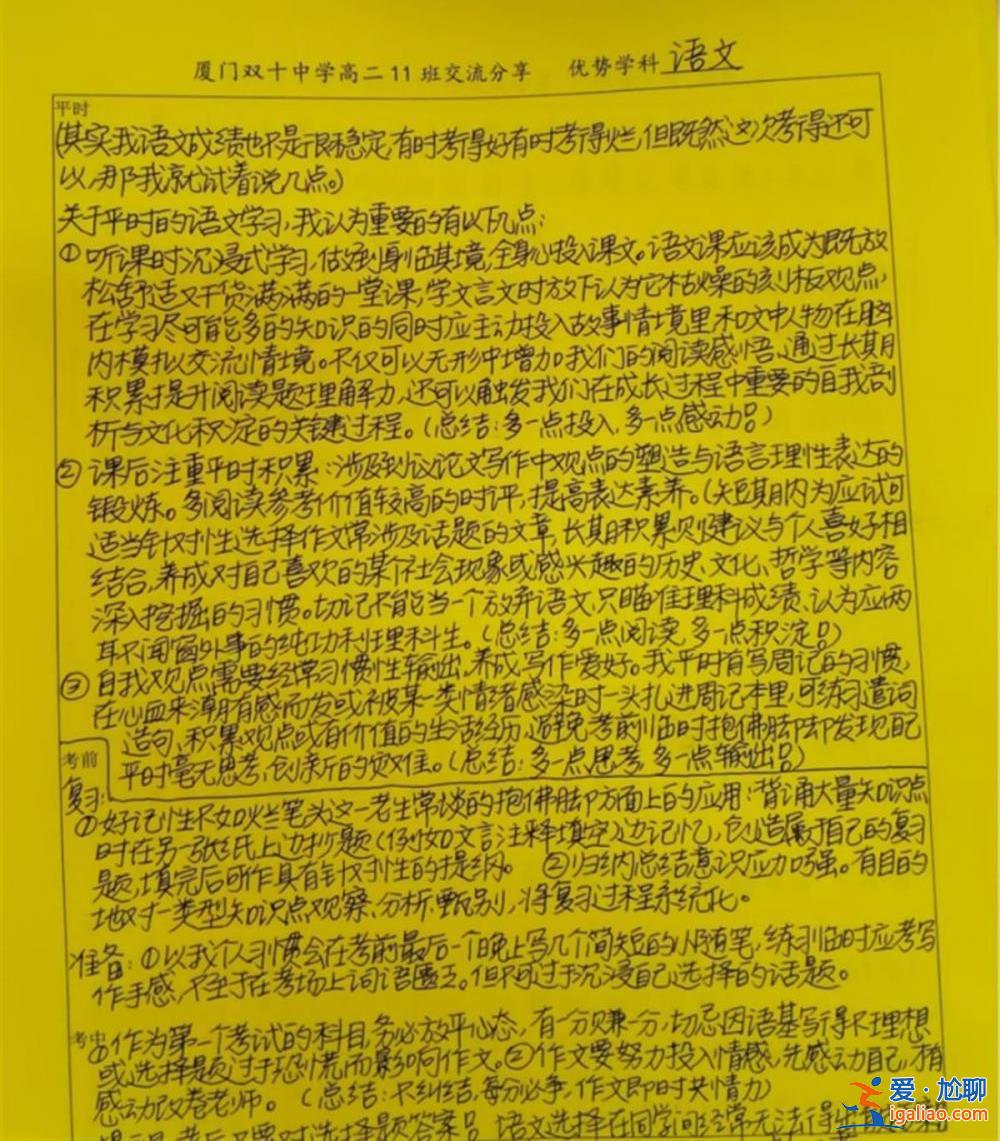 厦门双十中学高二11班交流分享 优势学科 语文
平时
(其实我语文成绩也不是很稳定,有时考得好有时考得烂,但既然这次考得还可
以,那我就试着说几点。)
关于平时的语文学习,我认为重要的有以下几点:
①听课时沉浸式学习,做到身临其境,全身心投入课文。语文课应该成为既放
松舒适又干货满满的一堂课,学文言文时放下认为它枯燥的刻板观点,
在学习尽可能多的知识的同时应主动投入故事情境里和文中人物在脑
内模拟交流情境。不仅可以无形中增加我们的阅读感悟,通过长期
积累提升阅读题理解力,还可以触发我们在成长过程中重要的自我剖
析与文化积淀的关键过程。(总结:多一点投入,多一点感动!)
②课后注重平时积累:涉及到议论文写作中观点的塑造与语言理性表达的
锻炼。多阅读参考价值较高的时评,提高表达素养。(短期内为应试可
适当针对性选择作文常涉及话题的文章,长期积累则建议与个人喜好相
结合,养成对自己喜欢的某个社会现象或感兴趣的历史、文化、哲学等内容
深入挖掘的习惯。切记不能当一个放弃语文、只瞄准理科成绩、认为应两
耳不闻窗外事的纯功利理科生。(总结:多一点阅读,多一点积淀!)
③自我观点需要经常习惯性输出,养成写作爱好。我平时有写周记的习惯,
在心血来潮有感而发或被某一类情绪感染时一头扎进周记本里,可练习遣词
造句,积累观点或有价值的生活经历,避免考前临时抱佛脚却发现自己
平时毫无思考、创新的负难。(总结:多一点思考,多一点输出!)
考前
复习:
①好记性不如烂笔头这一老生常谈的抱佛脚方面上的应用:背诵大量知识点
时在另一张纸上边抄题(例如文言注释填空)边记忆,创造属于自己的复习
题,填完后可作具有针对性的提纲。 ②归纳总结意识应加强。有目的
地对一类型知识点观察、分析、甄别,将复习过程系统化。
准备:①以我个人习惯会在考前最后一个晚上写几个简短的小随笔,练习临时应考写
作手感,不至于在考场上词语匮乏。但不过于沉浸自己选择的话题。
考中
①作为第一个考试的科目,务必放平心态,有一分赚一分,切忌因语基写得不理想
或选择题过于恐慌而影响作文。②作文要努力投入情感,先感动自己,再
感动改卷老师。(总结:不纠结,每分必争,作文即时共情力)
爱·尬聊
igaliao.com